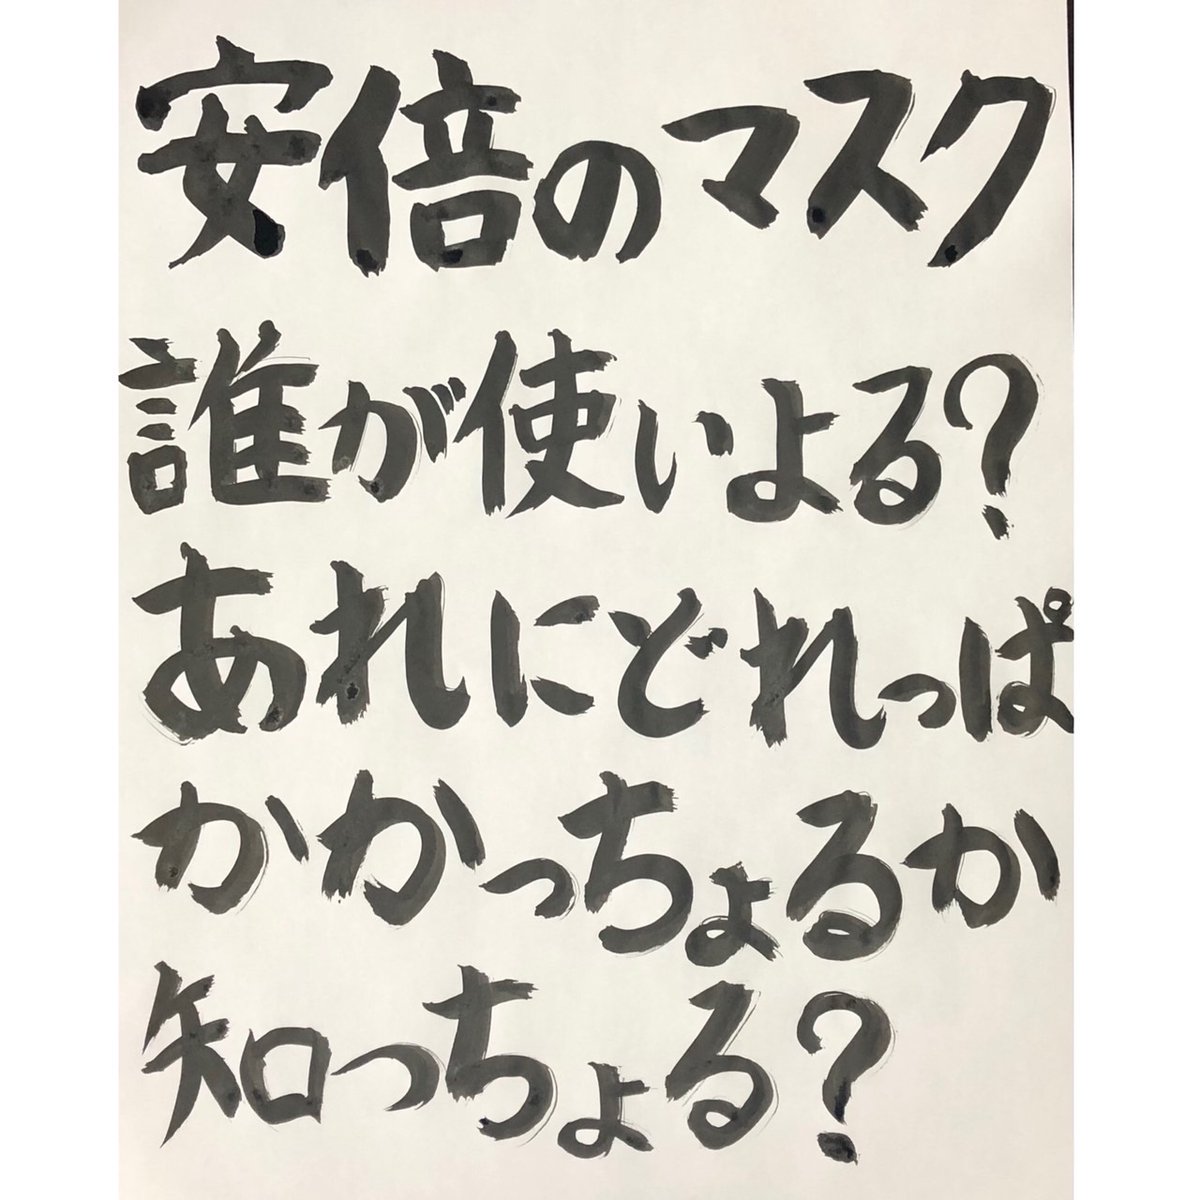 安倍のマスク
誰が使いよる?
あれにどれっぱ
かかっちょるか
知っちょる?